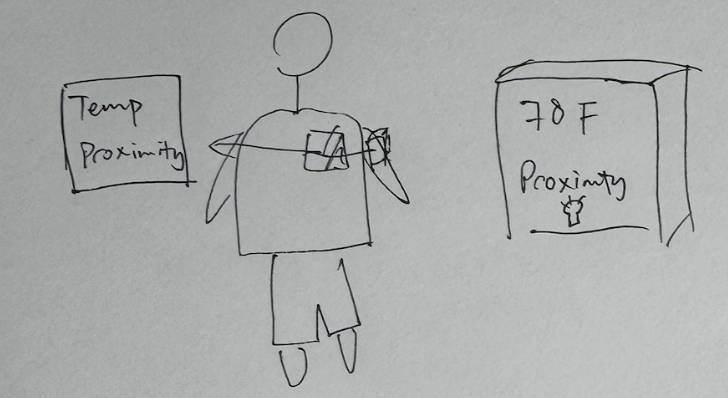 Temp
Proximity
70 F
Proximity